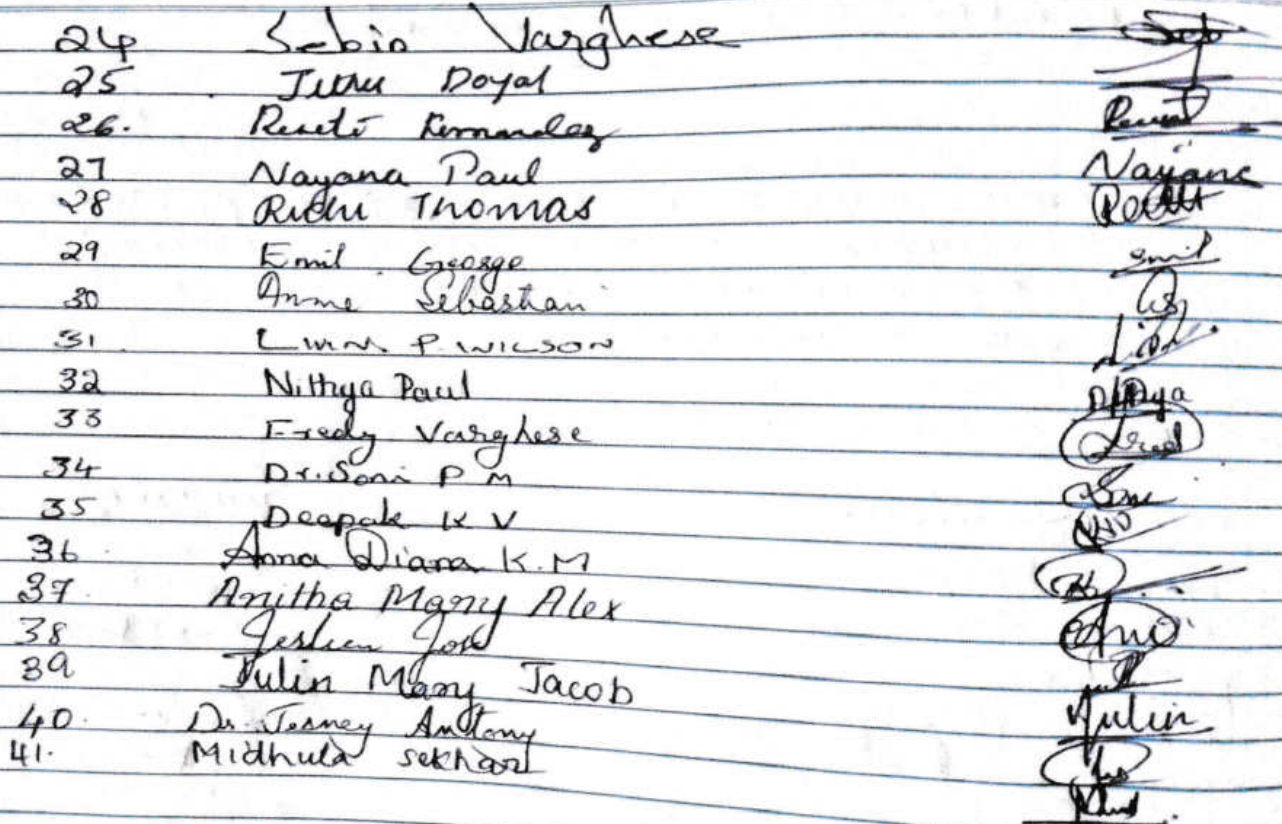 24 Sebin Varghese Seb
25 Doyal
26. Fernandez
27 Nayana Paul Nayana
28 Richu Thomas
29 Emil George Emil
30 Anme Sebastian
31 P. WILSON
32 Nithya Paul
33 Fredy Varghese Fred
34 Dr. Soni P M
35 Deepak K V
36 Anna Diana K.M
37. Anitha Mary Alex
38 Jeslin Jose Ani
39 Julin Mary Jacob
40. Dr. Jesney Antony Julin
41. Midhula sekhar